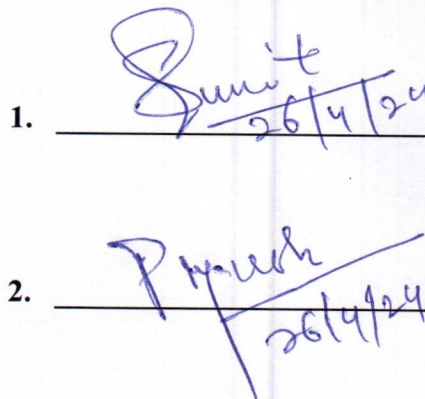 1. Sumit
26/4/24
2. Piyush
26/4/24